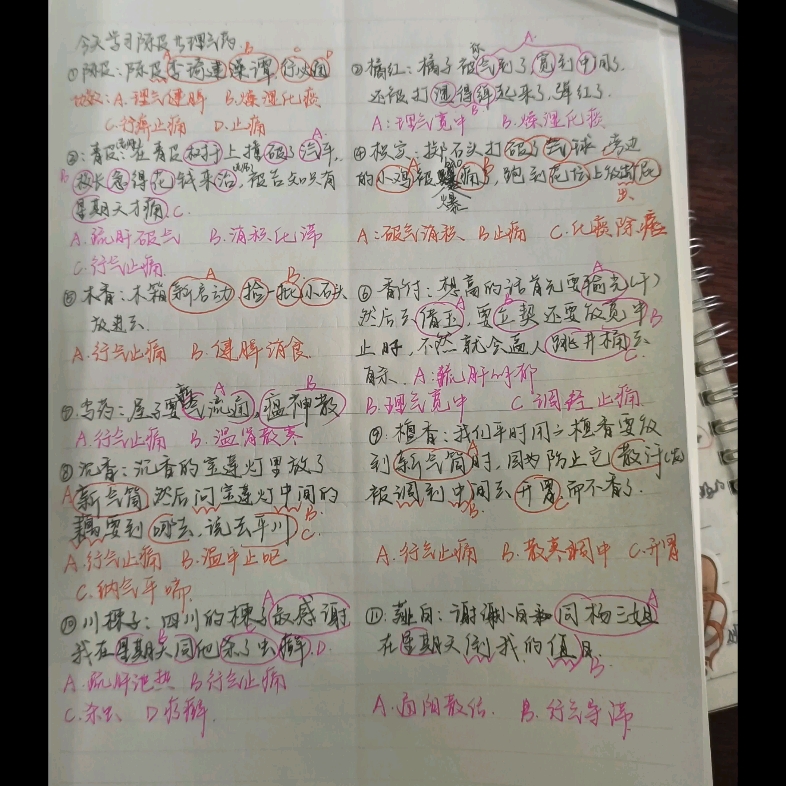 今天学习陈皮类理气药.
①陈皮:陈皮 燥 行
功效:A.理气健脾 B.燥湿化痰
C.行痹止痛 D.止痛
②橘红:橘子被气到了,宽到中间了.
还被打湿得 起来了,弹红了.
A:理气宽中 B.燥湿化痰
③:青皮:在青皮树干上撞破了汽车,
急得花钱来治,被告知只有
星期天才痛 C.
A.疏肝破气 B.消积化滞
C.行气止痛
④枳实:打石头打破了气球,旁边
的小鸡被爆痛了,跑到花坛上
A:破气消积 B止痛 C.化痰除痞
⑤木香:木箱新启动 捡一批小石头
放进去
A.行气止痛 B.健脾消食
⑥香附:想高的话首先要输光(干)
然后去 玉,要立契还要放宽中
止呼,不然就会逼人跳开桶去
A:疏肝解郁
B.理气宽中 C.调经止痛
⑦乌药:屋子要气流通,瘟神散
A.行气止痛 B.温肾散寒
⑧沉香:沉香的宝莲灯里放了
新气筒 然后问宝莲灯中间的
藕要到哪去,说去平川
A.行气止痛 B.温中止呕
C.纳气平喘
⑨檀香:我们平时用的檀香要放
到新气筒时,因为防止它散汗
被调到中间去 开胃而不香了.
A.行气止痛 B.散寒调中 C.开胃
⑩川楝子:四川的楝子最感谢
我在星期天同他杀了虫癣.D.
A.疏肝泄热 B行气止痛
C.杀虫 D疗癣.
⑪薤白:谢谢小白和同杨三姐
在星期天 到我的
A.通阳散结. B.行气导滞